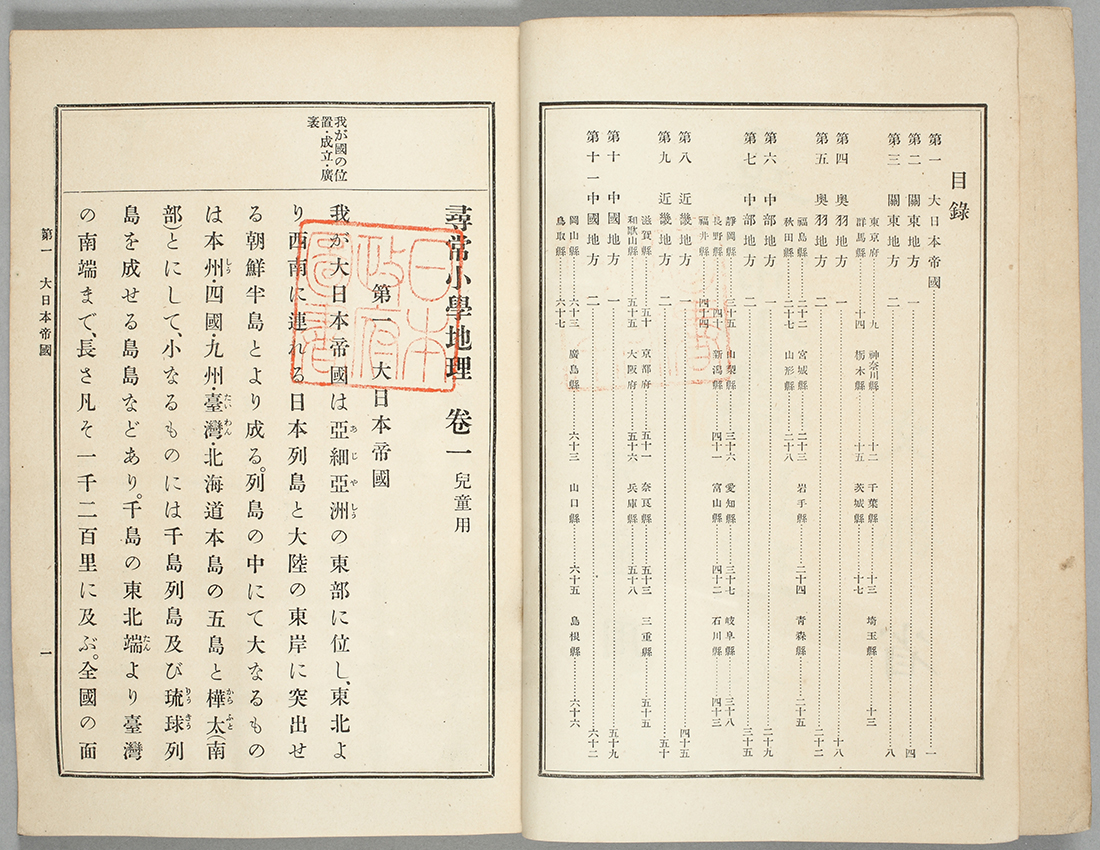 目錄
第一 大日本帝國 一
第二 關東地方 一 四
第三 關東地方 二 八
東京府 九 神奈川縣 十二 千葉縣 十三 埼玉縣 十三
群馬縣 十四 栃木縣 十五 茨城縣 十七
第四 奧羽地方 一 十八
第五 奧羽地方 二 二十二
福島縣 二十二 宮城縣 二十三 岩手縣 二十四 青森縣 二十五
秋田縣 二十七 山形縣 二十八
第六 中部地方 一 二十九
第七 中部地方 二 三十五
靜岡縣 三十五 山梨縣 三十六 愛知縣 三十七 岐阜縣 三十八
長野縣 四十 新潟縣 四十一 富山縣 四十二 石川縣 四十三
福井縣 四十四
第八 近畿地方 一 四十五
第九 近畿地方 二 五十
滋賀縣 五十 京都府 五十一 奈良縣 五十三 三重縣 五十五
和歌山縣 五十五 大阪府 五十六 兵庫縣 五十八
第十 中國地方 一 五十九
第十一 中國地方 二 六十二
岡山縣 六十三 廣島縣 六十三 山口縣 六十五 島根縣 六十六
鳥取縣 六十七
尋常小學地理 卷一 兒童用
第一 大日本帝國
我が國の位
置・成立・廣
袤
我が大日本帝國は亞細亞洲の東部に位し、東北よ
り西南に連れる日本列島と大陸の東岸に突出せ
る朝鮮半島とより成る。列島の中にて大なるもの
は本州・四國・九州・臺灣・北海道本島の五島と樺太(南
部)とにして、小なるものには千島列島及び琉球列
島を成せる島島などあり。千島の東北端より臺灣
の南端まで、長さ凡そ一千二百里に及ぶ。全國の面
第一 大日本帝國 一
日本
政府
圖書